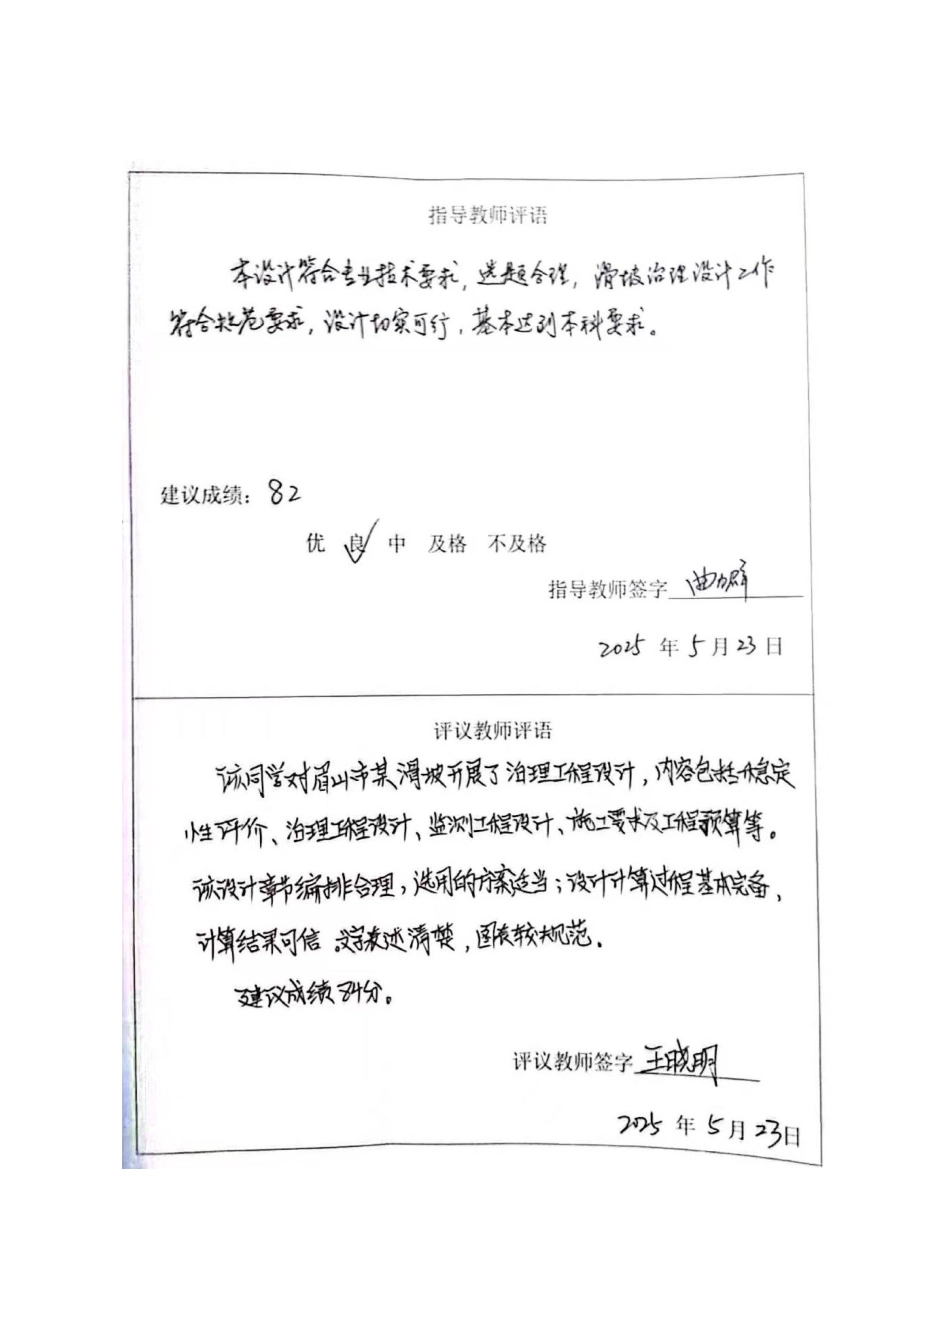 指导教师评语
本设计符合专业技术要求，选题合理，滑坡治理设计工作
符合规范要求，设计切实可行，基本达到本科要求。
建议成绩：82
优 良 中 及格 不及格
指导教师签字
2025 年 5 月 23 日
评议教师评语
该同学对眉山市某滑坡开展了治理工程设计，内容包括稳定
性评价、治理工程设计、监测工程设计、施工要求及工程预算等。
该设计章节编排合理，选用的方案适当；设计计算过程基本完备，
计算结果可信。文字表述清楚，图表较规范.
建议成绩84分。
评议教师签字 王晓明
2025 年 5 月 23 日